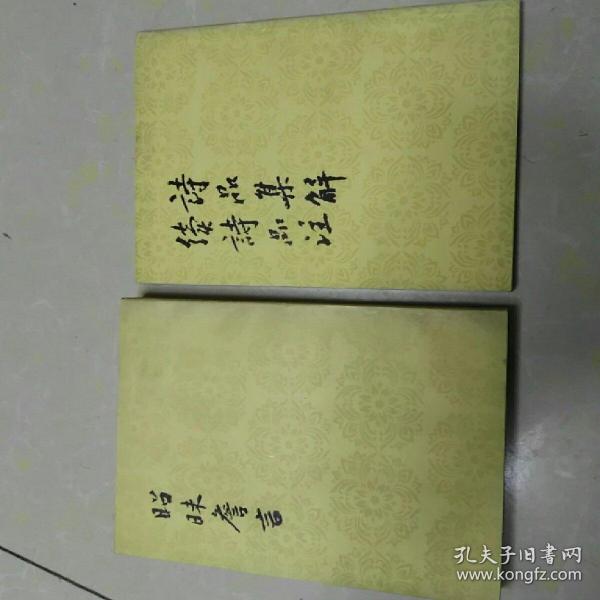 詩品集解
續詩品注
昭昧詹言
孔夫子旧書网
www.kongfz.com